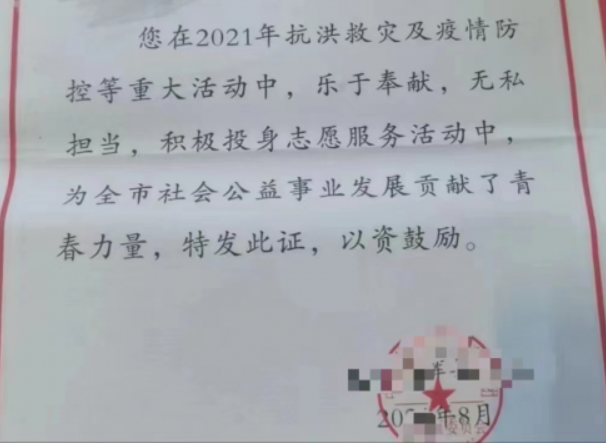 您在2021年抗洪救灾及疫情防
控等重大活动中，乐于奉献，无私
担当，积极投身志愿服务活动中，
为全市社会公益事业发展贡献了青
春力量，特发此证，以资鼓励。
年8月
委员会